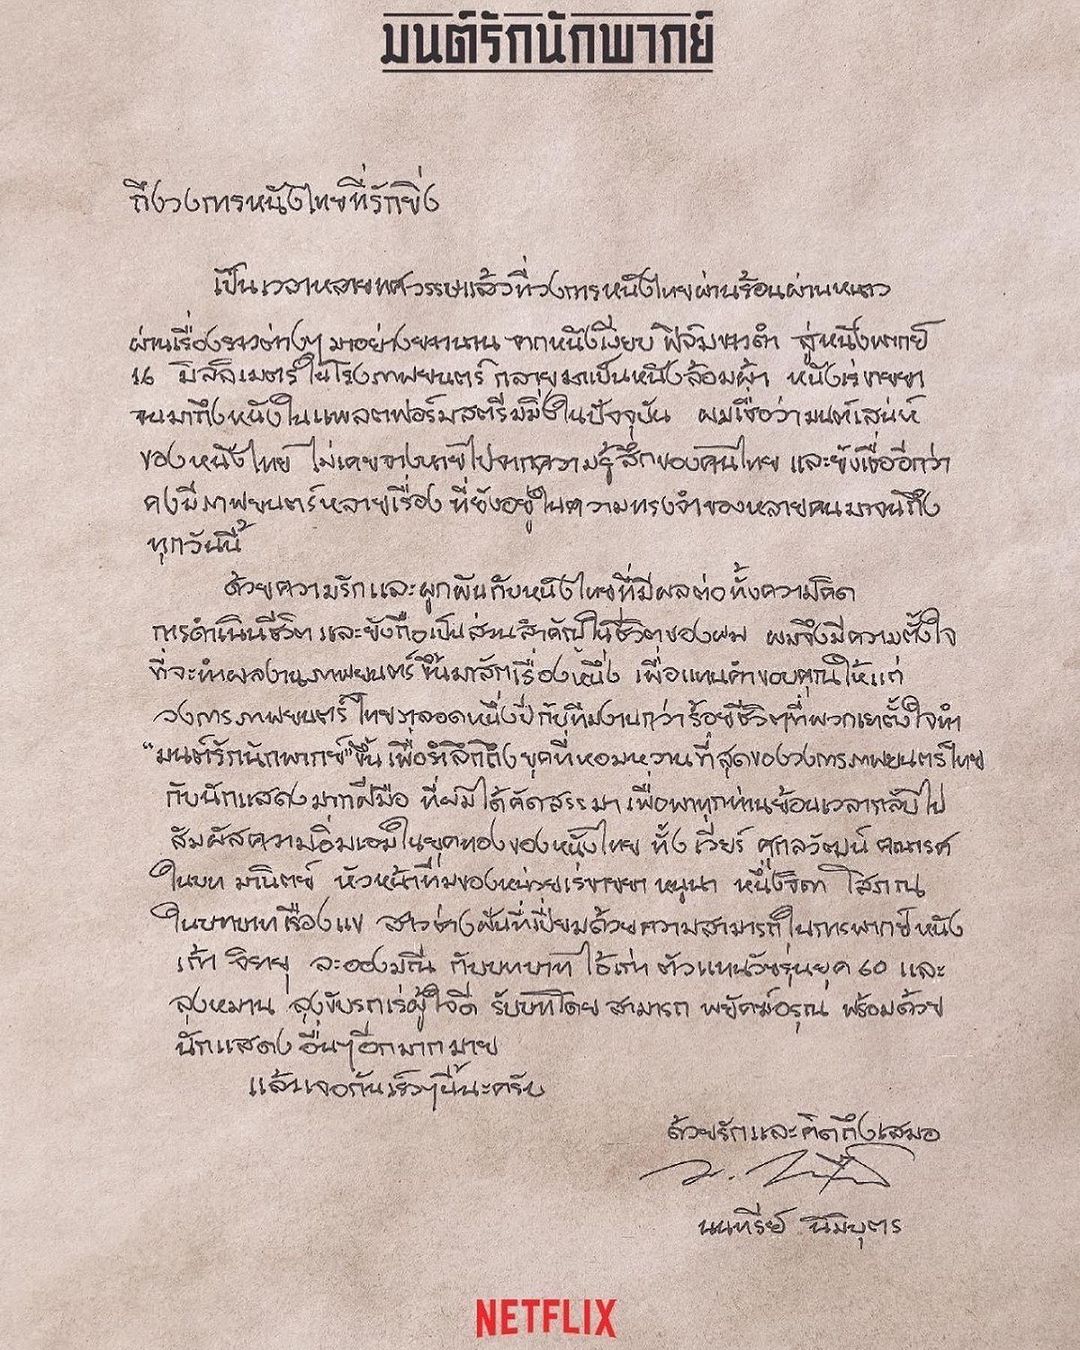 มนต์รักนักพากย์
ถึงวงการหนังไทยที่รักยิ่ง
เป็นเวลาหลายทศวรรษแล้วที่วงการหนังไทยผ่านร้อนผ่านหนาว
ผ่านเรื่องราวต่างๆ มาอย่างยาวนาน จากหนังเงียบ ฟิล์มขาวดำ สู่หนังพากย์
16 มิลลิเมตร์ในโรงภาพยนตร์ กลายมาเป็นหนังล้อมผ้า หนังเร่ขายยา
จนมาถึงหนังในแพลตฟอร์มสตรีมมิ่งในปัจจุบัน ผมเชื่อว่ามนต์เสน่ห์
ของหนังไทย ไม่เคยจางหายไปจากความรู้สึกของคนไทย และยังเชื่ออีกว่า
คงมีภาพยนตร์หลายเรื่อง ที่ยังอยู่ในความทรงจำของหลายคนมาจนถึง
ทุกวันนี้
ด้วยความรักและผูกพันกับหนังไทยที่มีผลต่อทั้งความคิด
การดำเนินชีวิต และยังถือเป็นส่วนสำคัญในชีวิตของผม ผมจึงมีความตั้งใจ
ที่จะทำผลงานภาพยนตร์ขึ้นมาสักเรื่องหนึ่ง เพื่อแทนคำขอบคุณให้แก่
วงการภาพยนตร์ไทยตลอดหนึ่งปีกับทีมงานกว่าร้อยชีวิตที่พวกเราตั้งใจทำ
“มนต์รักนักพากย์”ขึ้น เพื่อรำลึกถึงยุคที่หอมหวานที่สุดของวงการภาพยนตร์ไทย
กับนักแสดงมากฝีมือ ที่ผมได้คัดสรรมา เพื่อพาทุกท่านย้อนเวลากลับไป
สัมผัสความอิ่มเอมในยุคทองของหนังไทย ทั้ง เวียร์ ศุกลวัฒน์ คณารศ
ในบท มานิตย์ หัวหน้าทีมของหน่วยเร่ขายยา หนูนา หนึ่งธิดา โสภณ
ในบทบาทเรืองแข สาวช่างฝันที่เปี่ยมด้วยความสามารถในการพากย์หนัง
เก้า จิรายุ ละอองมณี กับบทบาท ไอ้เก่า ตัวแทนวัยรุ่นยุค 60 และ
ลุงหมาน ลุงขับรถเร่ผู้ใจดี รับบทโดย สามารถ พยัคฆ์อรุณ พร้อมด้วย
นักแสดง อื่นๆอีกมากมาย
แล้วเจอกันเร็วๆนี้นะครับ
ด้วยรักและคิดถึงเสมอ
นนทรีย์ นิมิบุตร
NETFLIX